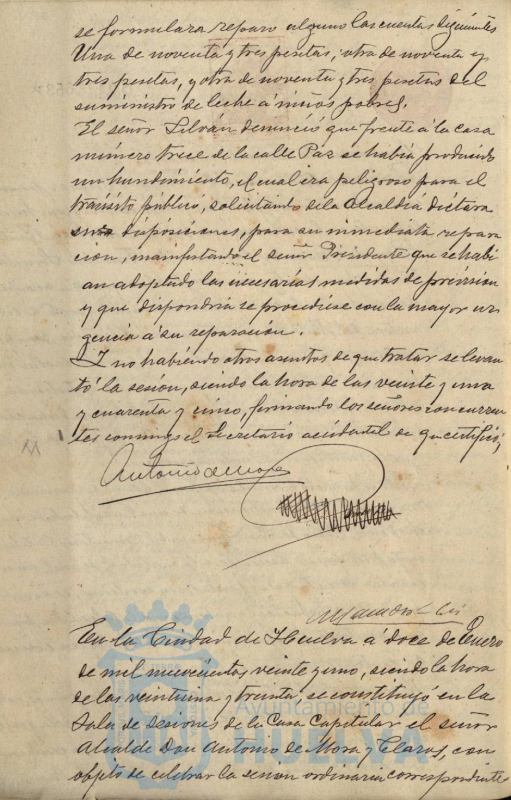 se formulara reparo alguno las cuentas siguientes
Una de noventa y tres pesetas, otra de noventa y
tres pesetas, y otra de noventa y tres pesetas del
suministro de leche á niños pobres.
El señor Silván denunció que frente á la casa
número trece de la calle Paz se habia producido
un hundimiento, el cual era peligroso para el
transito publico, solicitando de la Alcaldia dictara
sus disposiciones, para su inmediata repara
cion, manifestando el señor Presidente que se habi
an adoptado las necesarias medidas de prevision
y que dispondria se procediese con la mayor ur
gencia á su reparación.
Y no habiendo otros asuntos de que tratar se levan
tó la sesion, siendo la hora de las veinte y una
y cuarenta y cinco, firmando los señores concurren
tes conmigo el Secretario accidental de que certifico,
Antonio de Mora
En la Ciudad de Huelva á doce de Enero
de mil novecientos veinte y uno, siendo la hora
de las veintiuna y treinta, se constituyó en la
Sala de Sesiones de la Casa Capitular el señor
Alcalde Don Antonio de Mora y Claros, con
objeto de celebrar la sesion ordinaria correspondiente
Ayuntamiento de
HUELVA